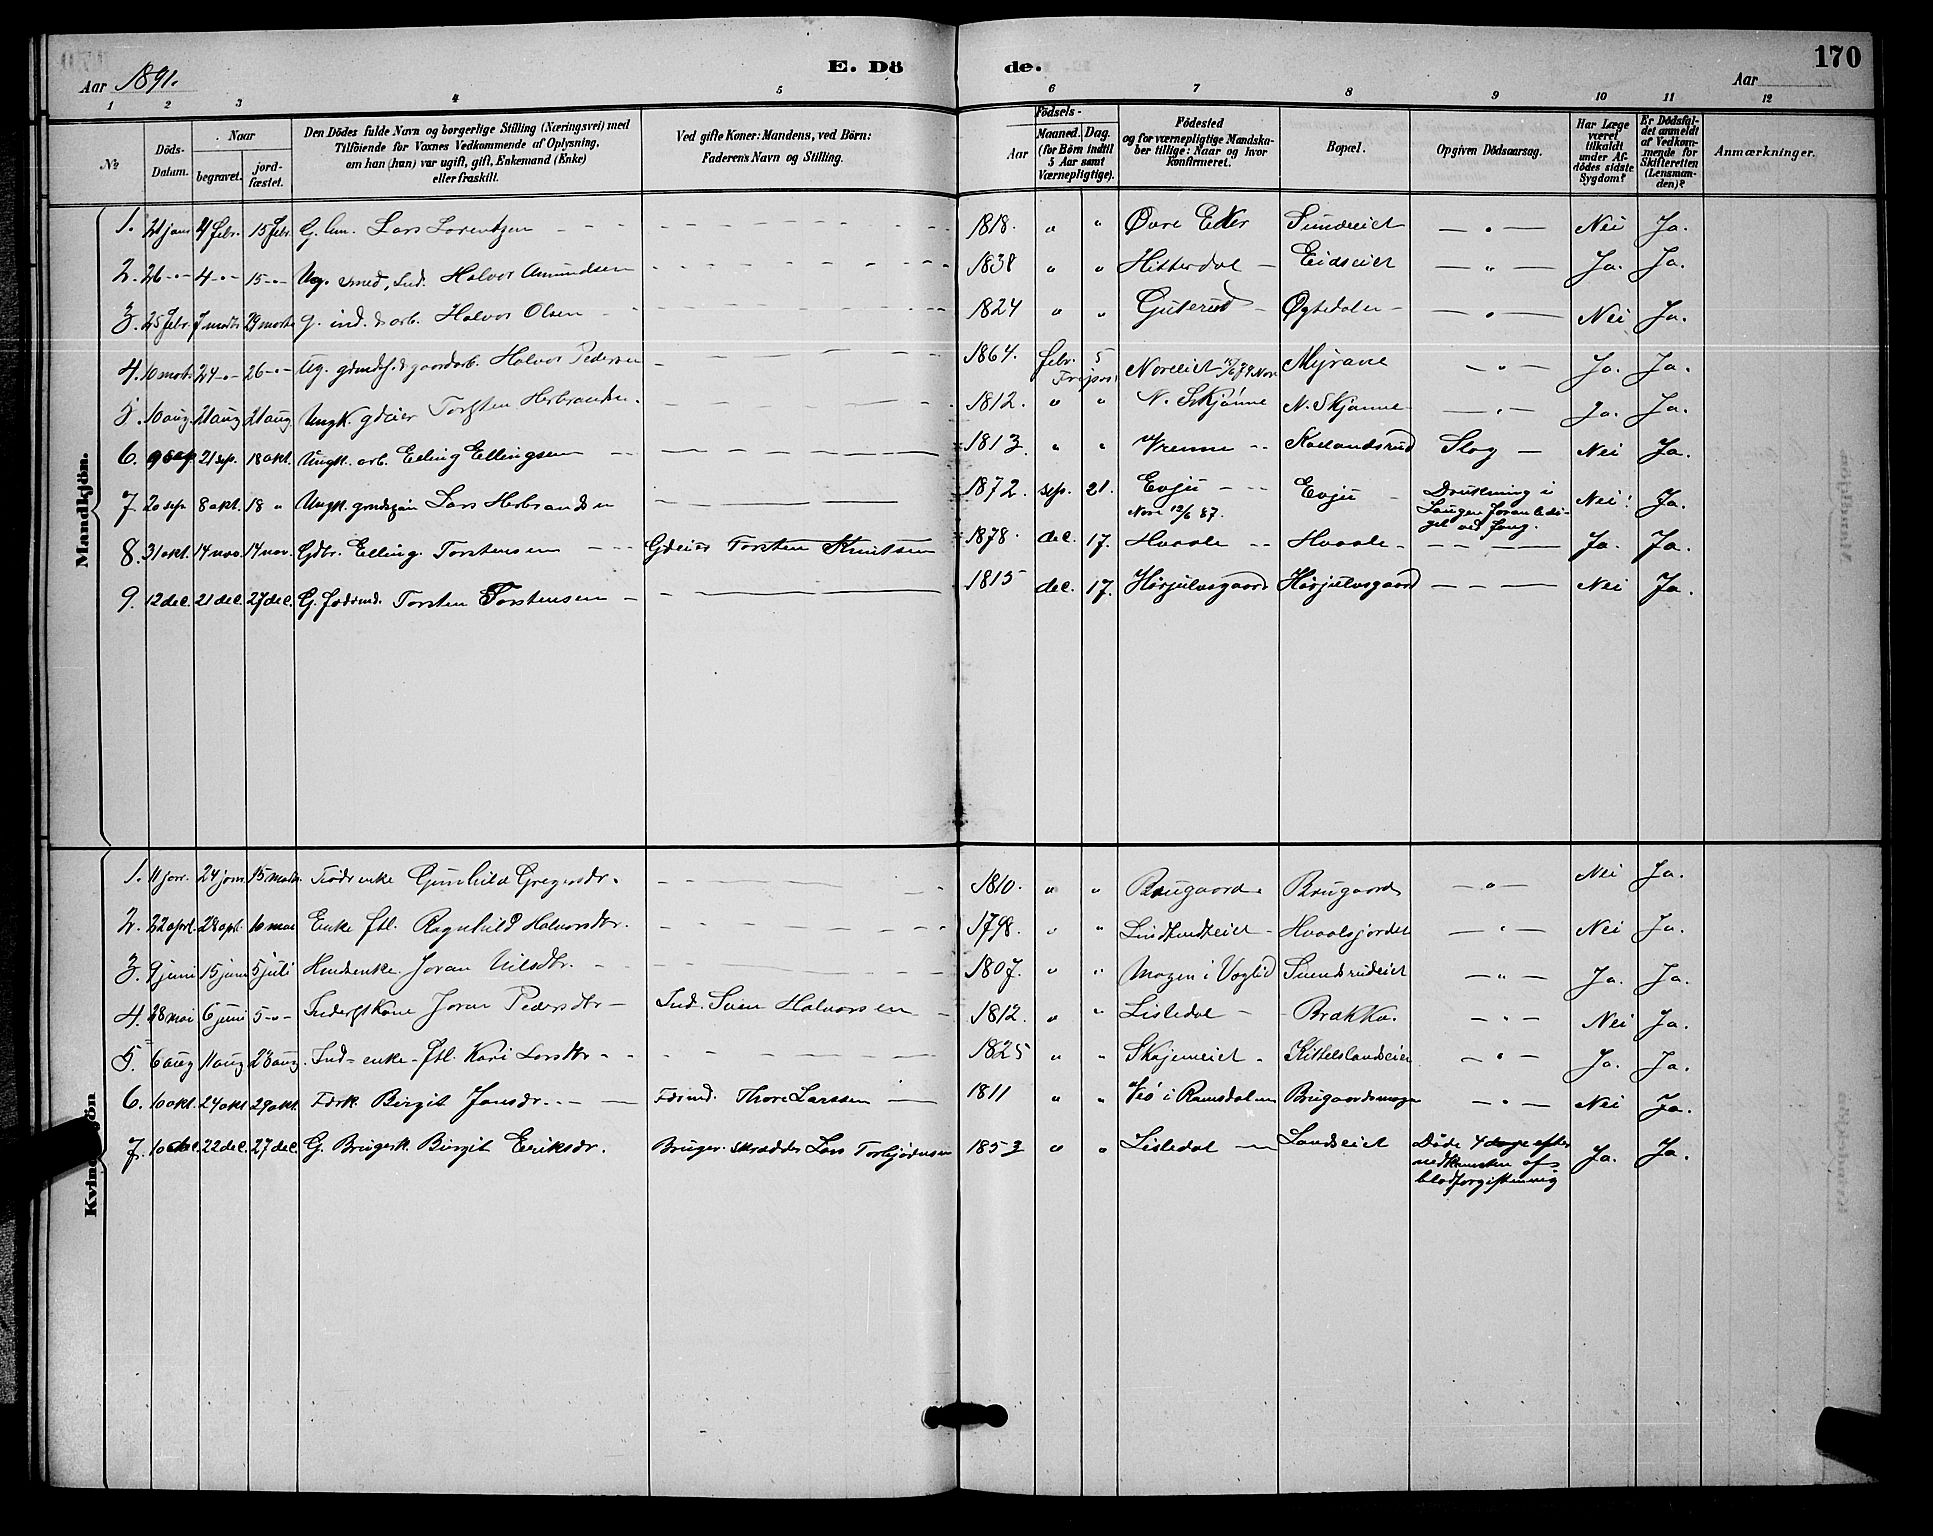 E. Dö de.
170
Aar 1891.
Aar
1 2 3 4 5 6 7 8 9 10 11 12
№
Döds-Datum.
Naar
begravet.
jord-fæstet.
Den Dödes fulde Navn og borgerlige Stilling (Næringsvei) med
Tilföiende for Voxnes Vedkommende af Oplysning,
om han (hun) var ugift, gift, Enkemand (Enke)
eller fraskilt.
Ved gifte Koner: Mandens, ved Börn:
Faderens Navn og Stilling.
Födsels-
Aar
Maaned. Dag.
(for Börn indtil
5 Aar samt
Værnepligtige).
Födested
og for værnepligtige Mandska-
ber tillige: Naar og hvor
konfirmeret.
Bopæl.
Opgiven Dödsaarsag.
Har Læge
været
tilkaldt
under Af-
dödes sidste
Sygdom?
Er Dödsfal-
det anmeldt
af Vedkom-
mende for
Skifteretten
(Lensman-
den)?
Anmærkninger.
Mandkjön.
1. 21 jan 4 febr. 15 febr. Lars Lorentzen 1818. " " Øvre Eker Sundeiet — " — Nei Ja.
2. 26 -"- 4 -"- 15 -"- Ug. smed, Ind. Halvor Amundsen 1838 " " Hitterdal Eidseiet — " — Ja. Ja.
3. 25 febr 7 marts 29 marts g. ind. & arb. Halvor Olsen 1824 " " Guterud Øgtedalen — " — Nei Ja.
4. 10 marts 24 -"- 26 -"- Ug. gaardarb. Halvor Pedersen 1864. febr. 5 Noreiet Nore Myrane — " — Ja. Ja.
5. 10 aug. 21 aug 21 aug. Ungk. gdeier Torsten Herbrandsen. 1812. " " N. Skjønne N. Skjønne — " — Ja. Ja.
6. 9 sep. 21 sep. 18 okt. Ungk. arb. Elling Ellingsen 1813 " " Vrenne Kaalandsrud Slag — Nei Ja.
7. 20 sep. 8 okt. 18 " Ungk. Lars Herbrandsen 1872. sep. 21. Evju Evju Drukning i Nei Ja.
Nore 12/6 87. Laugen
ved
8. 31 okt. 14 nov. 14 nov. Gdbr. Elling Torstensen Gdeier Torsten Knutsen 1878. dec. 17. Hvaale Hvaale Ja. Ja.
9. 12 dec. 21 dec. 27 dec. G. föderaad. Torsten Torstensen 1815 dec. 17. Hørjulvsgaard Hørjulvsgaard Nei Ja.
Kvindekjön
1. 11 jan. 24 jan 15 marts Gunhild Gregersdr. 1810. " " Brugaard Brugaard — " — Nei Ja.
2. 22 april. 28 april. 10 mai Enke ftl. Ragnhild Halvorsdtr. 1798. " " Hvaalsjordet — " — Nei Ja.
3. 9 juni 15 juni 5 juli Joran Nilsdtr. 1807. " " Mogen i Veglid Svendsrudeiet — " — Ja. Ja.
4. 28 mai 6 juni 5 -"- Kone Joran Pedersdtr Ind. Sven Halvorsen 1812. " " Lisledal Brakka. — " — Nei Ja.
5. 6 aug 11 aug 23 aug. Ind-enke-ftl. Kari Larsdtr 1825 " " Skajemeiet Kittelslandseiet — " — Ja. Ja.
6. 10 okt. 24 okt 29 okt. Birgit Jonsdr. Thore Larssen 1811 " " i Ramsdalen Brugaardsmogen — " — Nei Ja.
7. 10 dec. 22 dec. 27 dec. G. Brugerk. Birgit Eriksdr. Bruger. Skrædder Lars Torbjørnsen 1853 " " Lisledal Landseiet Døde 4 dage efter Ja. Ja.
nedkomsten af
blodforgiftning